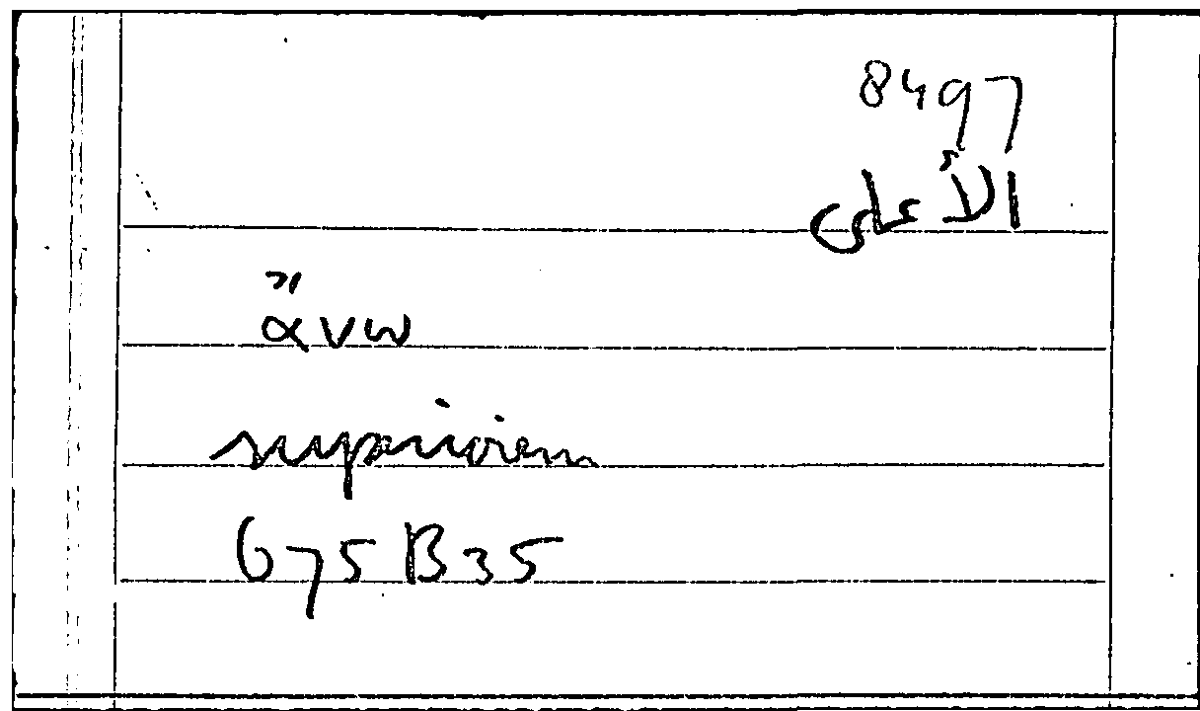 8497
الأعلى
ἄνω
superiorem
675 B 35